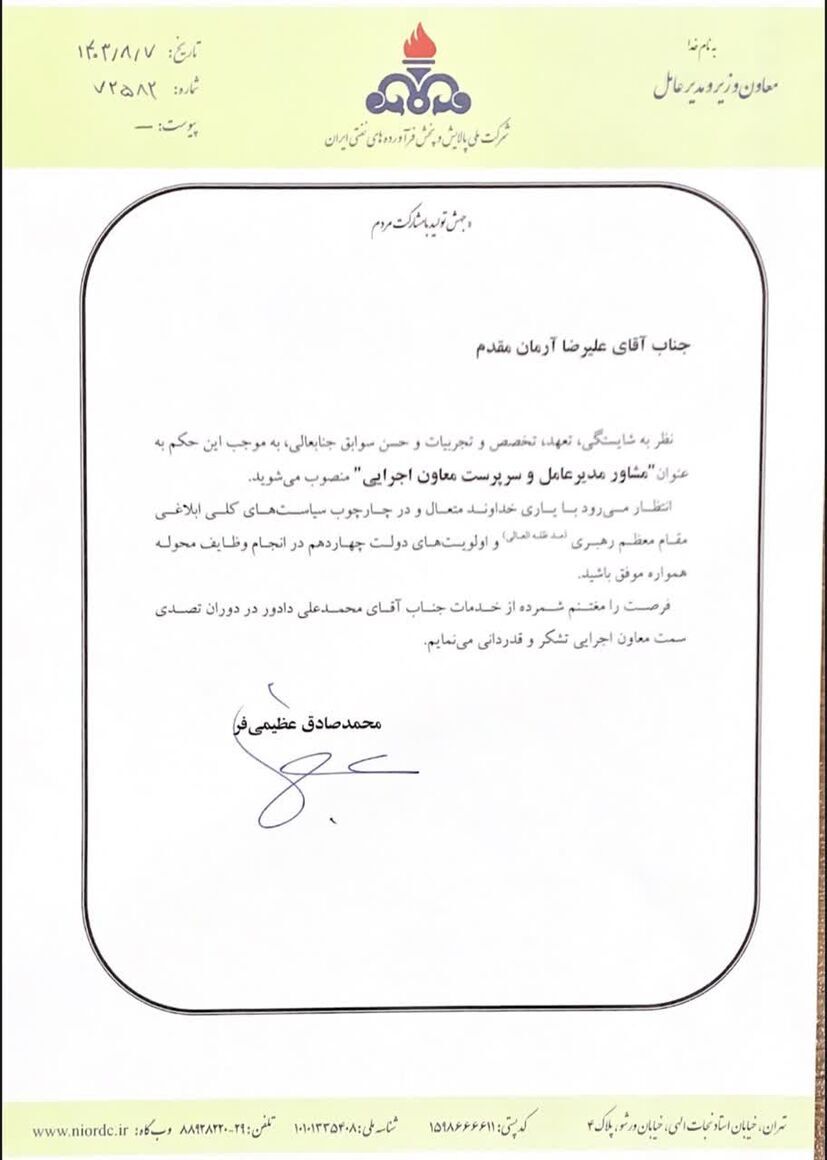 به نام خدا
معاون وزیر و مدیرعامل
تاریخ: ۱۴۰۳/۸/۷
شماره: ۷۲۵۸۲
پیوست: —
شرکت ملی پالایش و پخش فرآورده های نفتی ایران
«جهش تولید با مشارکت مردم»
جناب آقای علیرضا آرمان مقدم
نظر به شایستگی، تعهد، تخصص و تجربیات و حسن سوابق جنابعالی، به موجب این حکم به
عنوان "مشاور مدیرعامل و سرپرست معاون اجرایی" منصوب می‌شوید.
انتظار می‌رود با یاری خداوند متعال و در چارچوب سیاست‌های کلی ابلاغی
مقام معظم رهبری (مد ظله العالی) و اولویت‌های دولت چهاردهم در انجام وظایف محوله
همواره موفق باشید.
فرصت را مغتنم شمرده از خدمات جناب آقای محمدعلی دادور در دوران تصدی
سمت معاون اجرایی تشکر و قدردانی می‌نمایم.
محمدصادق عظیمی‌فر
تهران، خیابان استاد نجات الهی، خیابان ورشو، پلاک ۴ کدپستی: ۱۵۹۸۶۶۶۶۱۱ شناسه ملی: ۱۰۱۰۱۳۳۵۴۰۸ تلفن: ۲۹-۸۸۹۲۸۲۲۰ وب گاه: www.niordc.ir